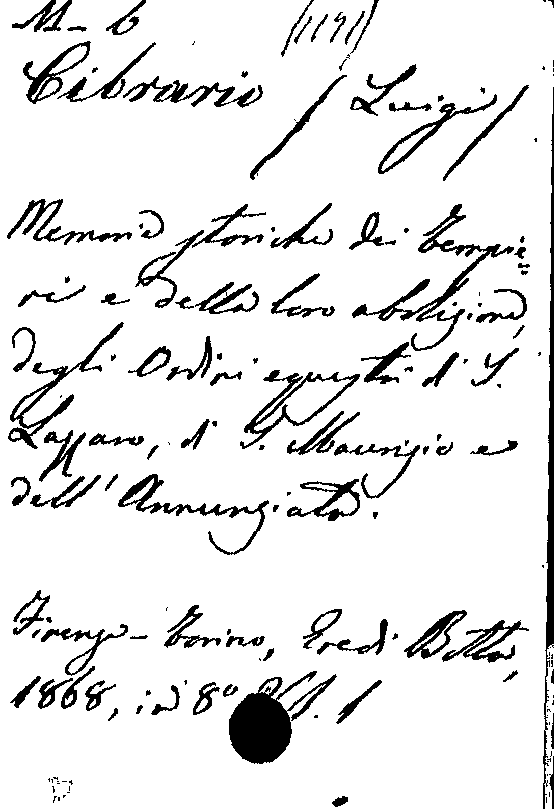 M-6 (1191)
Cibrario / Luigi /
Memorie storiche dei Tempie=
ri e della loro abolizione,
degli Ordini equestri di S.
Lazzaro, di S. Maurizio e
dell'Annunziata.
Firenze - Torino, Eredi Botta,
1868, in 8° Vol. 1